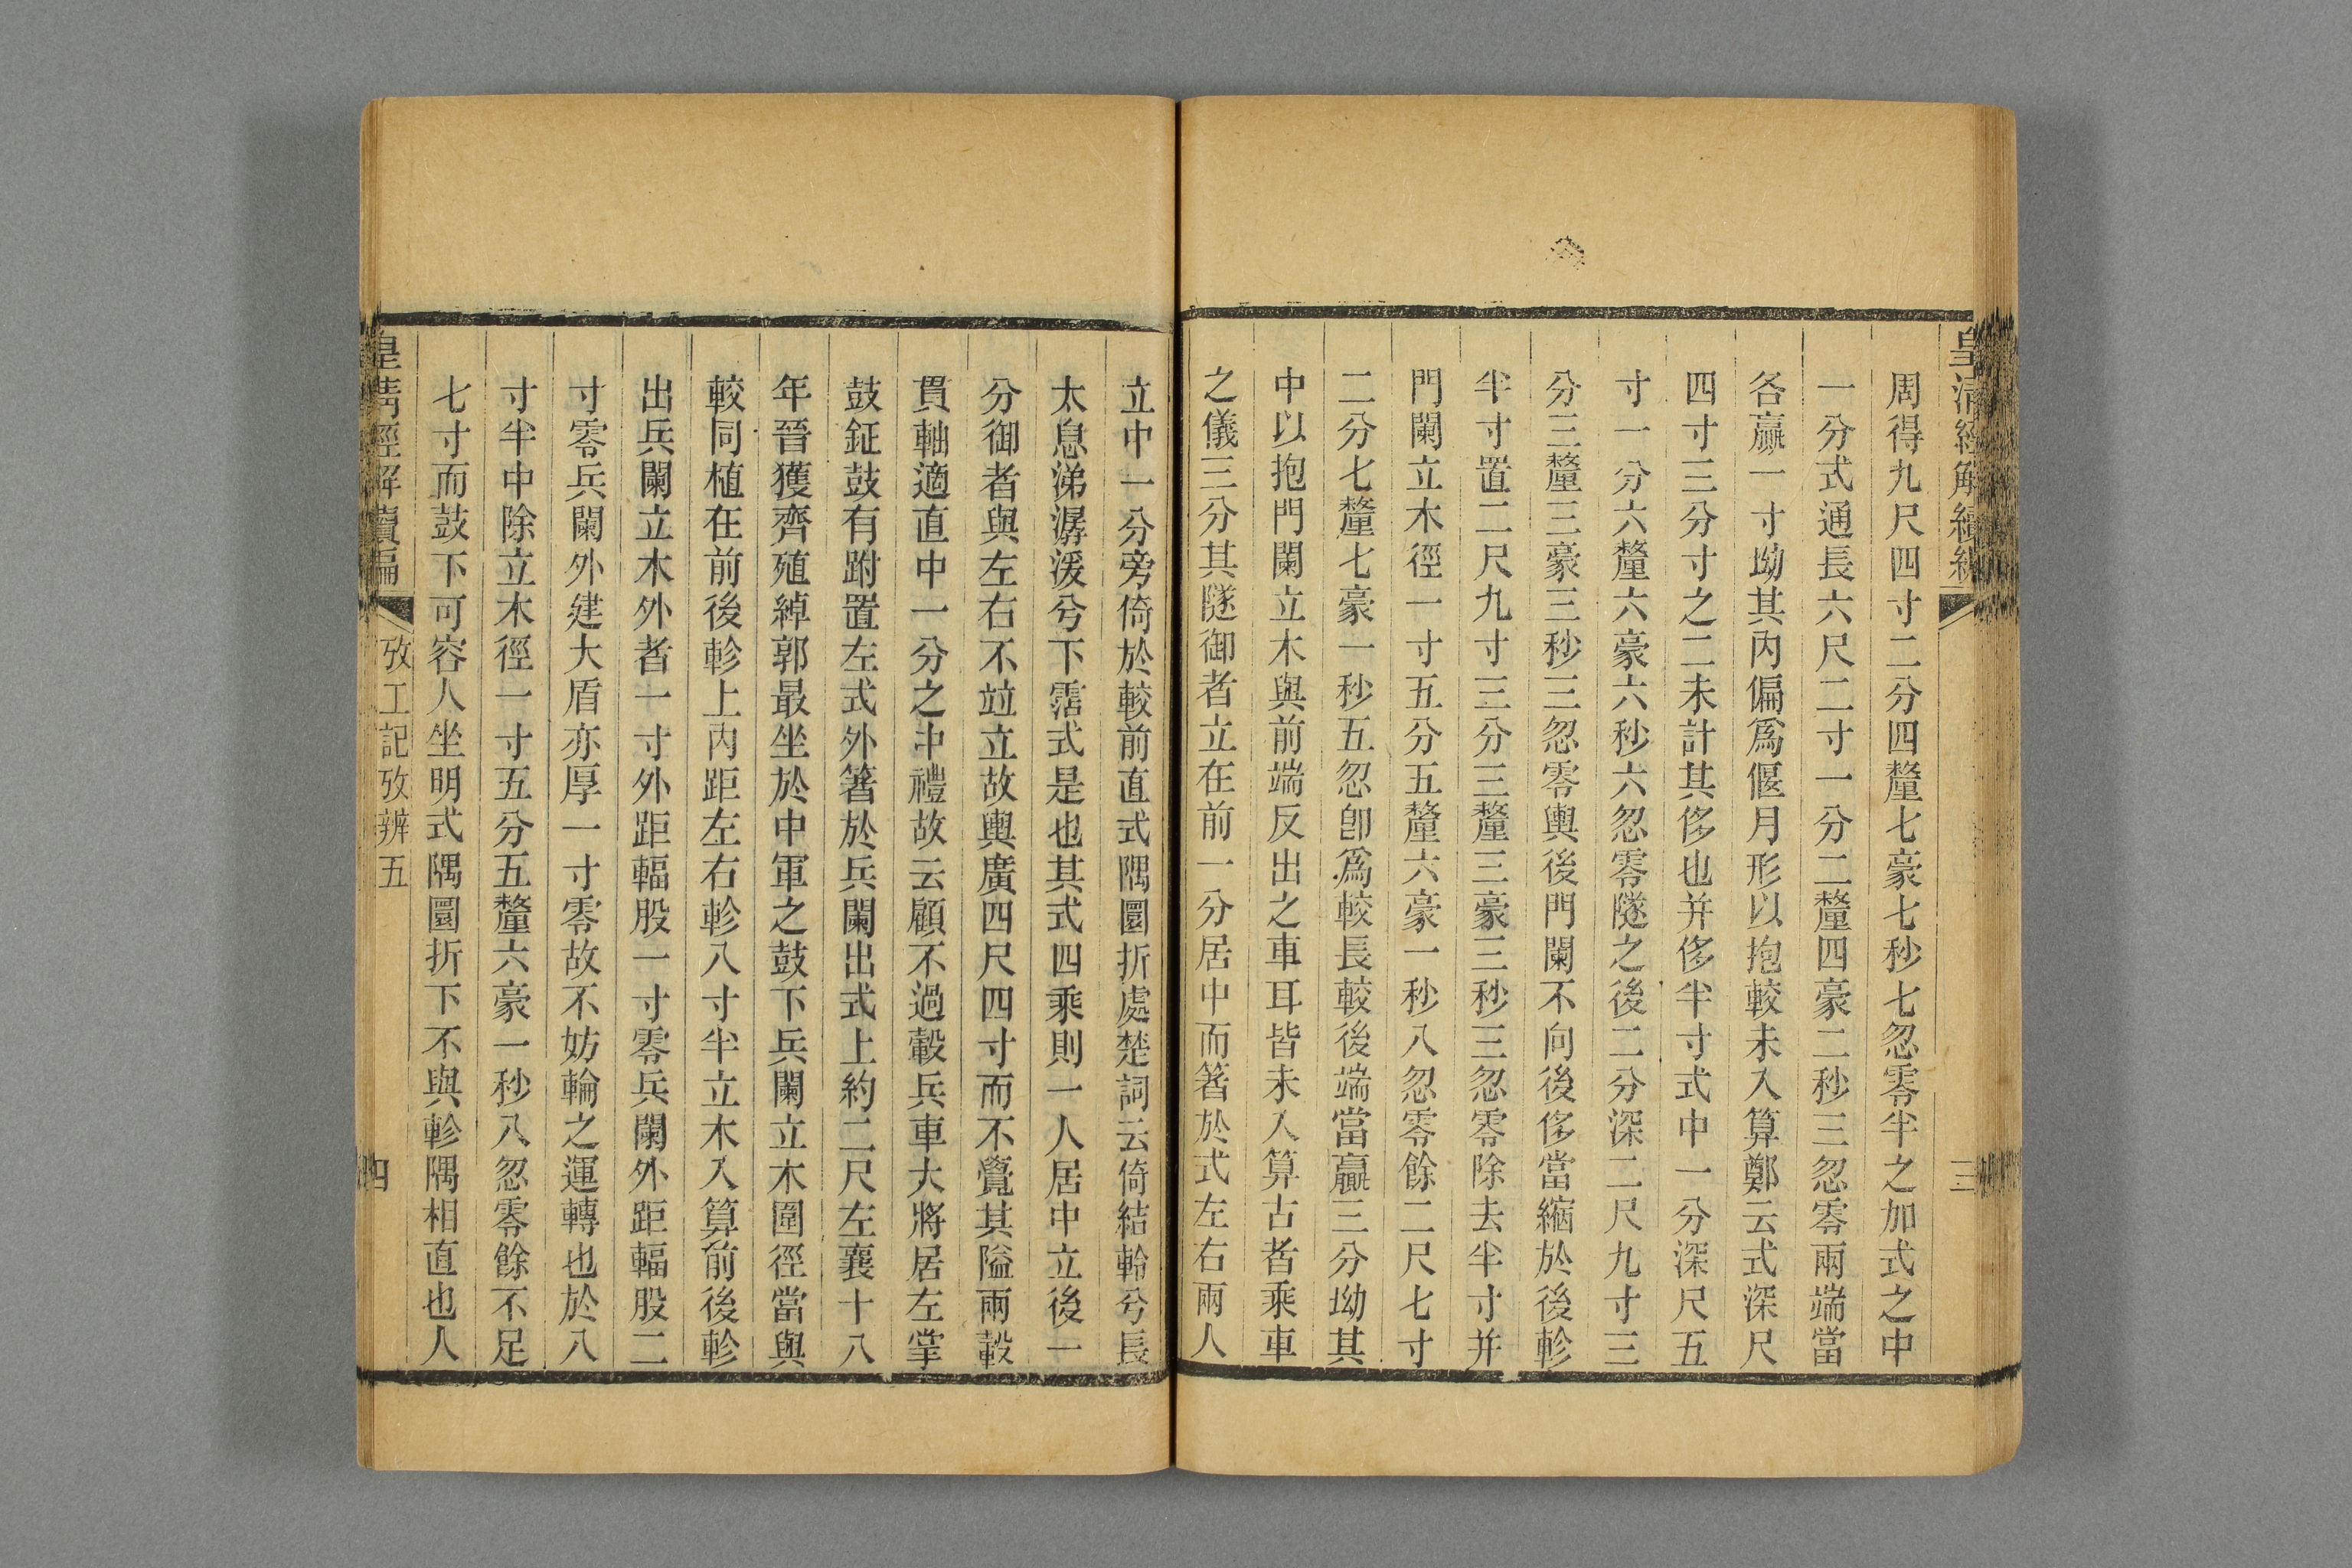 皇清經解續編
三
周得九尺四寸二分四釐七豪七秒七忽零半之加式之中
一分式通長六尺二寸一分二釐四豪二秒三忽零兩端當
各贏一寸坳其內偏爲偃月形以抱較未入算鄭云式深尺
四寸三分寸之二未計其侈也并侈半寸式中一分深尺五
寸一分六釐六豪六秒六忽零隧之後二分深二尺九寸三
分三釐三豪三秒三忽零輿後門闌不向後侈當縮於後軫
半寸置二尺九寸三分三釐三豪三秒三忽零除去半寸并
門闌立木徑一寸五分五釐六豪一秒八忽零餘二尺七寸
二分七釐七豪一秒五忽卽爲較長較後端當贏三分坳其
中以抱門闌立木與前端反出之車耳皆未入算古者乘車
之儀三分其隧御者立在前一分居中而箸於式左右兩人
立中一分旁倚於較前直式隅圜折處楚詞云倚結軨兮長
太息涕潺湲兮下霑式是也其式四乘則一人居中立後一
分御者與左右不竝立故輿廣四尺四寸而不覺其隘兩轂
貫軸適直中一分之中禮故云顧不過轂兵車大將居左掌
鼓鉦鼓有跗置左式外箸於兵闌出式上約二尺左襄十八
年晉獲齊殖綽郭最坐於中軍之鼓下兵闌立木圍徑當與
較同植在前後軫上內距左右軫八寸半立木入算前後軫
出兵闌立木外者一寸外距輻股一寸零兵闌外距輻股二
寸零兵闌外建大盾亦厚一寸零故不妨輪之運轉也於八
寸半中除立木徑一寸五分五釐六豪一秒八忽零餘不足
七寸而鼓下可容人坐明式隅圜折下不與軫隅相直也人
皇清經解續編
攷工記攷辨五
四